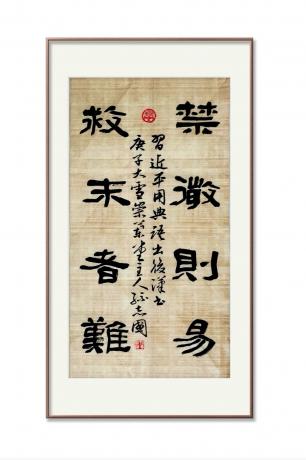 禁微則易
習近平用典語出後漢书
庚子大雪堂主人志國
救末者難